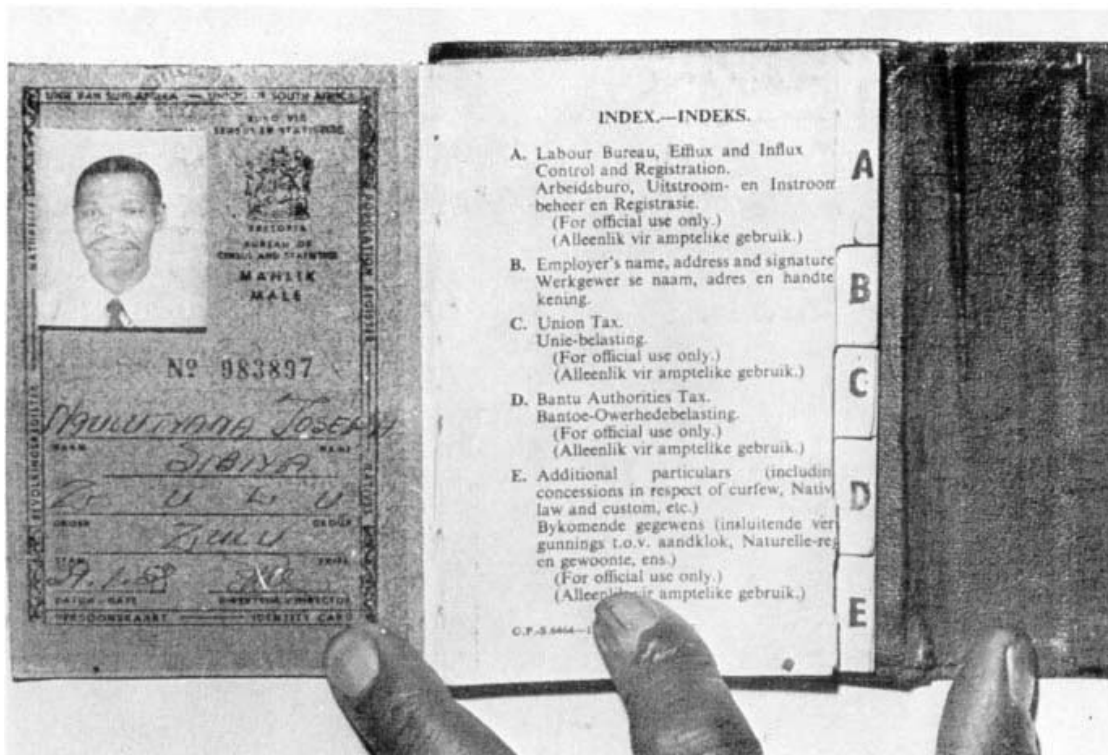 UNIE VAN SUID-AFRIKA — UNION OF SOUTH AFRICA
BURO VIR
SENSUS EN STATISTIEK
PRETORIA
BUREAU OF
CENSUS AND STATISTICS
MANLIK
MALE
No 983897
JOSEPH
NAAM NAME
SIBIYA
GROEP GROUP
ZULU
STAM TRIBE
DATUM - DATE DIREKTEUR - DIRECTOR
PERSOONSKAART — IDENTITY CARD
BEVOLKINGSREGISTER
POPULATION REGISTER
INDEX.—INDEKS.
A. Labour Bureau, Efflux and Influx
Control and Registration.
Arbeidsburo, Uitstroom- en Instroom
beheer en Registrasie.
(For official use only.)
(Alleenlik vir amptelike gebruik.)
B. Employer's name, address and signature
Werkgewer se naam, adres en handte
kening.
C. Union Tax.
Unie-belasting.
(For official use only.)
(Alleenlik vir amptelike gebruik.)
D. Bantu Authorities Tax.
Bantoe-Owerhedebelasting.
(For official use only.)
(Alleenlik vir amptelike gebruik.)
E. Additional particulars (includin
concessions in respect of curfew, Nativ
law and custom, etc.)
Bykomende gegewens (insluitende ver
gunnings t.o.v. aandklok, Naturelle-re
en gewoonte, ens.)
(For official use only.)
(Alleenlik vir amptelike gebruik.)
G.P.-S.6464—1
A
B
C
D
E